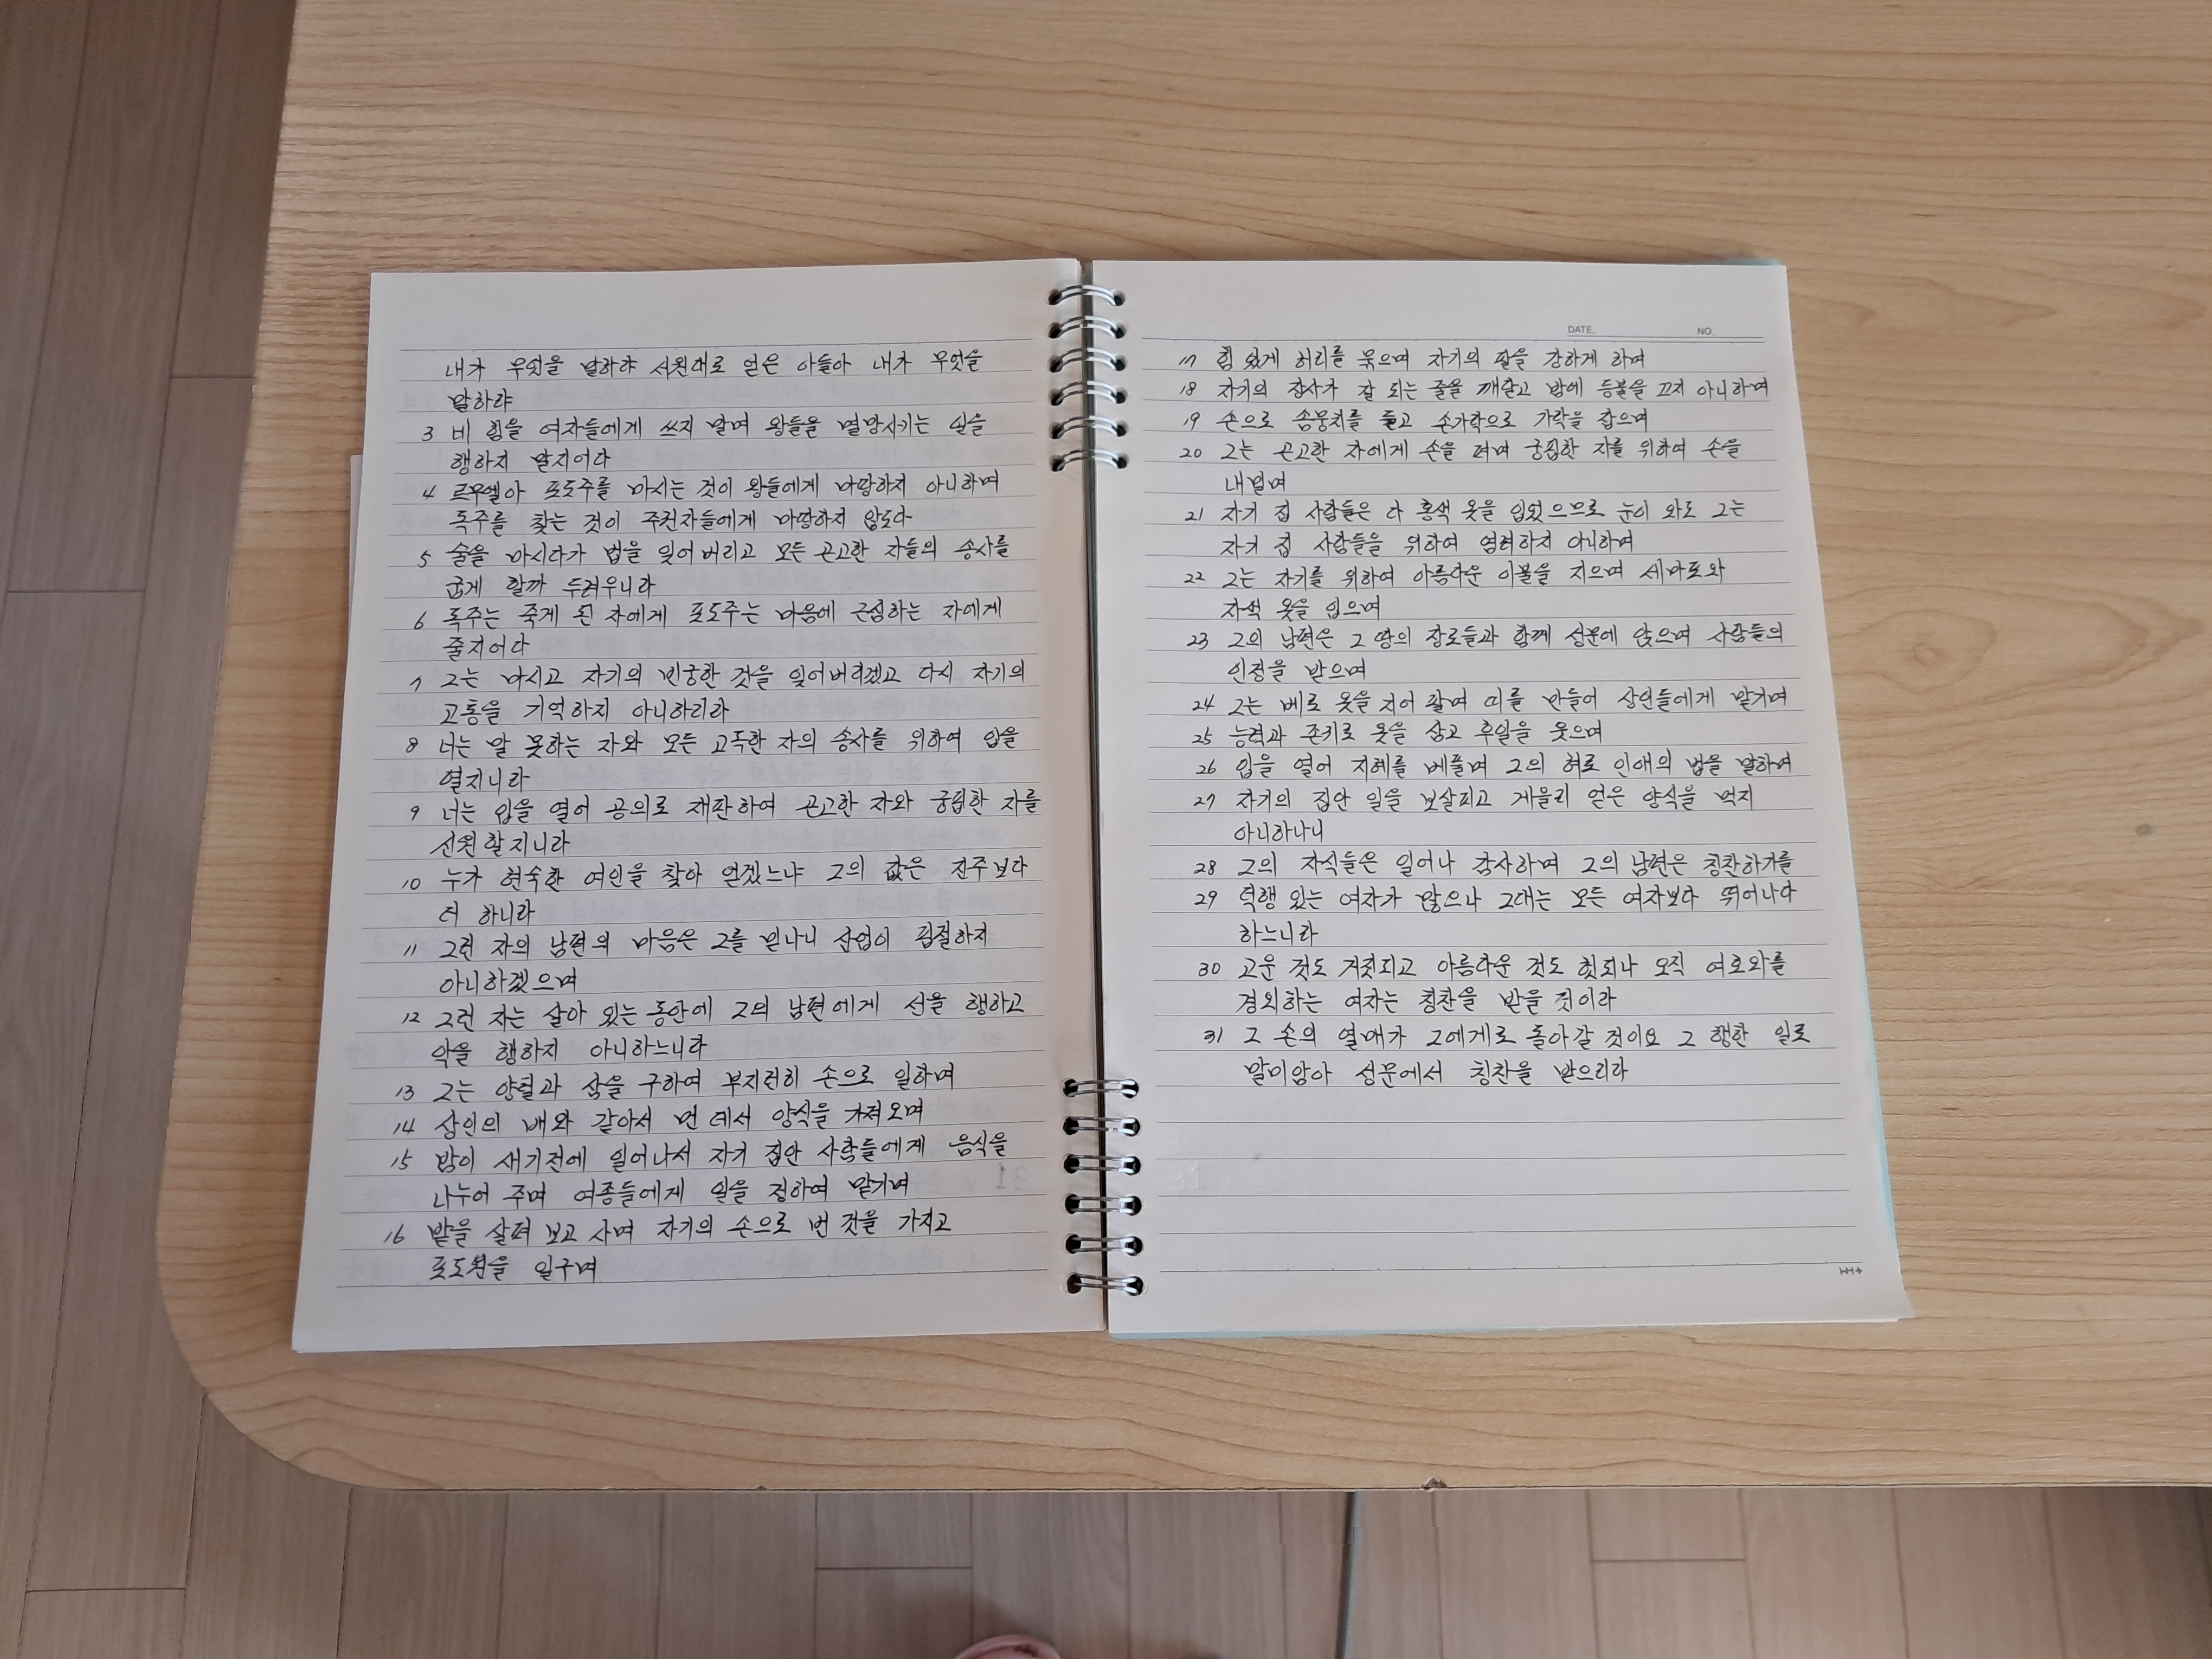 내가 무엇을 말하랴 서원대로 얻은 아들아 내가 무엇을
말하랴
3 네 힘을 여자들에게 쓰지 말며 왕들을 멸망시키는 일을
행하지 말지어다
4 르무엘아 포도주를 마시는 것이 왕들에게 마땅하지 아니하며
독주를 찾는 것이 주권자들에게 마땅하지 않도다
5 술을 마시다가 법을 잊어버리고 모든 곤고한 자들의 송사를
굽게 할까 두려우니라
6 독주는 죽게 된 자에게 포도주는 마음에 근심하는 자에게
줄지어다
7 그는 마시고 자기의 빈궁한 것을 잊어버리겠고 다시 자기의
고통을 기억하지 아니하리라
8 너는 말 못하는 자와 모든 고독한 자의 송사를 위하여 입을
열지니라
9 너는 입을 열어 공의로 재판하여 곤고한 자와 궁핍한 자를
신원할지니라
10 누가 현숙한 여인을 찾아 얻겠느냐 그의 값은 진주보다
더 하니라
11 그런 자의 남편의 마음은 그를 믿나니 산업이 핍절하지
아니하겠으며
12 그런 자는 살아 있는 동안에 그의 남편에게 선을 행하고
악을 행하지 아니하느니라
13 그는 양털과 삼을 구하여 부지런히 손으로 일하며
14 상인의 배와 같아서 먼 데서 양식을 가져오며
15 밤이 새기전에 일어나서 자기 집안 사람들에게 음식을
나누어 주며 여종들에게 일을 정하여 맡기며
16 밭을 살펴 보고 사며 자기의 손으로 번 것을 가지고
포도원을 일구며
DATE. NO.
17 힘 있게 허리를 묶으며 자기의 팔을 강하게 하며
18 자기의 장사가 잘 되는 줄을 깨닫고 밤에 등불을 끄지 아니하며
19 손으로 솜뭉치를 들고 손가락으로 가락을 잡으며
20 그는 곤고한 자에게 손을 펴며 궁핍한 자를 위하여 손을
내밀며
21 자기 집 사람들은 다 홍색 옷을 입었으므로 눈이 와도 그는
자기 집 사람들을 위하여 염려하지 아니하며
22 그는 자기를 위하여 아름다운 이불을 지으며 세마포와
자색 옷을 입으며
23 그의 남편은 그 땅의 장로들과 함께 성문에 앉으며 사람들의
인정을 받으며
24 그는 베로 옷을 지어 팔며 띠를 만들어 상인들에게 맡기며
25 능력과 존귀로 옷을 삼고 후일을 웃으며
26 입을 열어 지혜를 베풀며 그의 혀로 인애의 법을 말하며
27 자기의 집안 일을 보살피고 게을리 얻은 양식을 먹지
아니하나니
28 그의 자식들은 일어나 감사하며 그의 남편은 칭찬하기를
29 덕행 있는 여자가 많으나 그대는 모든 여자보다 뛰어나다
하느니라
30 고운 것도 거짓되고 아름다운 것도 헛되나 오직 여호와를
경외하는 여자는 칭찬을 받을 것이라
31 그 손의 열매가 그에게로 돌아갈 것이요 그 행한 일로
말미암아 성문에서 칭찬을 받으리라